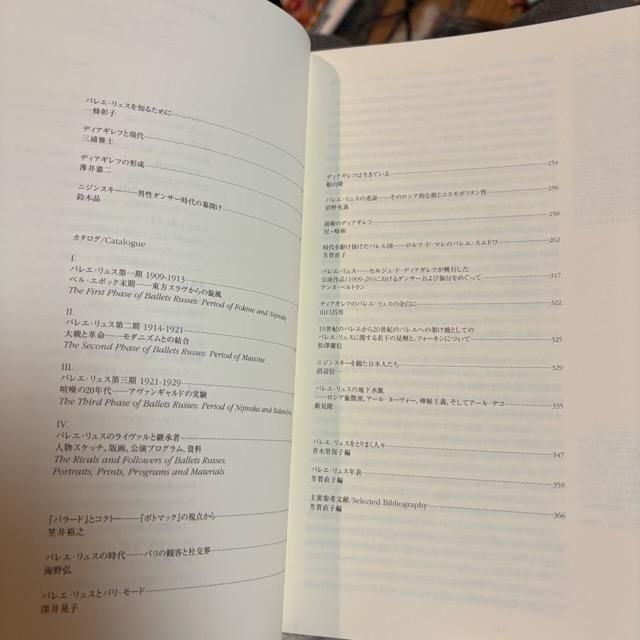 バレエ・リュスを知るために
一條彰子
ディアギレフと現代
三浦雅士
ディアギレフの形成
薄井憲二
ニジンスキー——男性ダンサー時代の幕開け
鈴木晶
カタログ/Catalogue
I.
バレエ・リュス第一期 1909-1913
ベル・エポック末期——東方スラヴからの旋風
The First Phase of Ballets Russes: Period of Fokine and Nijinsky
II.
バレエ・リュス第二期 1914-1921
大戦と革命——モダニズムとの結合
The Second Phase of Ballets Russes: Period of Massine
III.
バレエ・リュス第三期 1921-1929
喧噪の20年代——アヴァンギャルドの実験
The Third Phase of Ballets Russes: Period of Nijinska and Balanchine
IV.
バレエ・リュスのライヴァルと継承者
人物スケッチ、版画、公演プログラム、資料
The Rivals and Followers of Ballets Russes:
Portraits, Prints, Programs and Materials
『パラード』とコクトー——『ポトマック』の視点から
笠井裕之
バレエ・リュスの時代——パリの観客と社交界
海野弘
バレエ・リュスとパリ・モード
深井晃子
ディアギレフは生きている 254
船山隆
バレエ・リュスの逆説——そのロシア的な根とコスモポリタン性 256
沼野充義
前衛のディアギレフ 258
尼ヶ崎彬
時代を駆け抜けたバレエ団——ロルフ・ド・マレのバレエ・スエドワ 262
芳賀直子
バレエ・リュス——セルジュ・ド・ディアギレフが興行した
公演作品(1909-29)におけるダンサーおよび振付をめぐって 317
アンヌ・ベルトラン
ディアギレフのバレエ・リュスの余白に 322
山口昌男
19世紀のバレエから20世紀のバレエへの架け橋としての
バレエ・リュスに関する若干の見解と、フォーキンについて 325
松澤慶信
ニジンスキーを観た日本人たち 329
沼辺信一
バレエ・リュスの地下水脈
——ロシア象徴派、アール・ヌーヴォー、神秘主義、そしてアール・デコ 335
新見隆
バレエ・リュスをとりまく人々 347
青木里保子編
バレエ・リュス年表 359
芳賀直子編
主要参考文献/Selected Bibliography 366
芳賀直子編